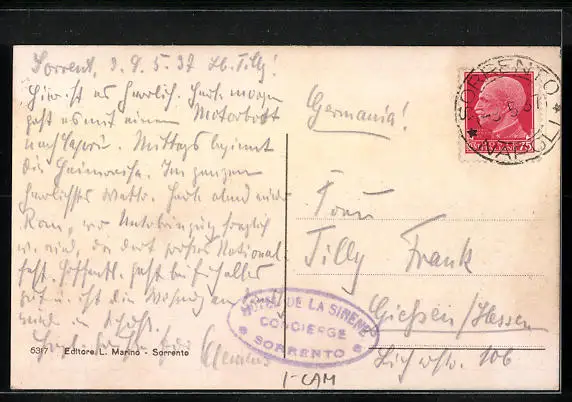 Sorrent, d. 9. 5. 37 Lb. Tilly!
Hier ist es herrlich. Heute morgen
geht es mit einem Motorboot
nach Capri. Mittags beginnt
die Heimreise. Im ganzen
herrlichstes Wetter. Heute abend wieder
Rom, wo
wird, da dort großes National-
fest. Hoffentl. geht bei Euch alles
gut u. ist die Wohnung
Germania!
Frau
Tilly Frank
Gießen/Hessen
106
SORRENTO
NAPOLI
75
HOTEL DE LA SIRENE
CONCIERGE
SORRENTO
5317 Editore L. Marino - Sorrento
I-CAM